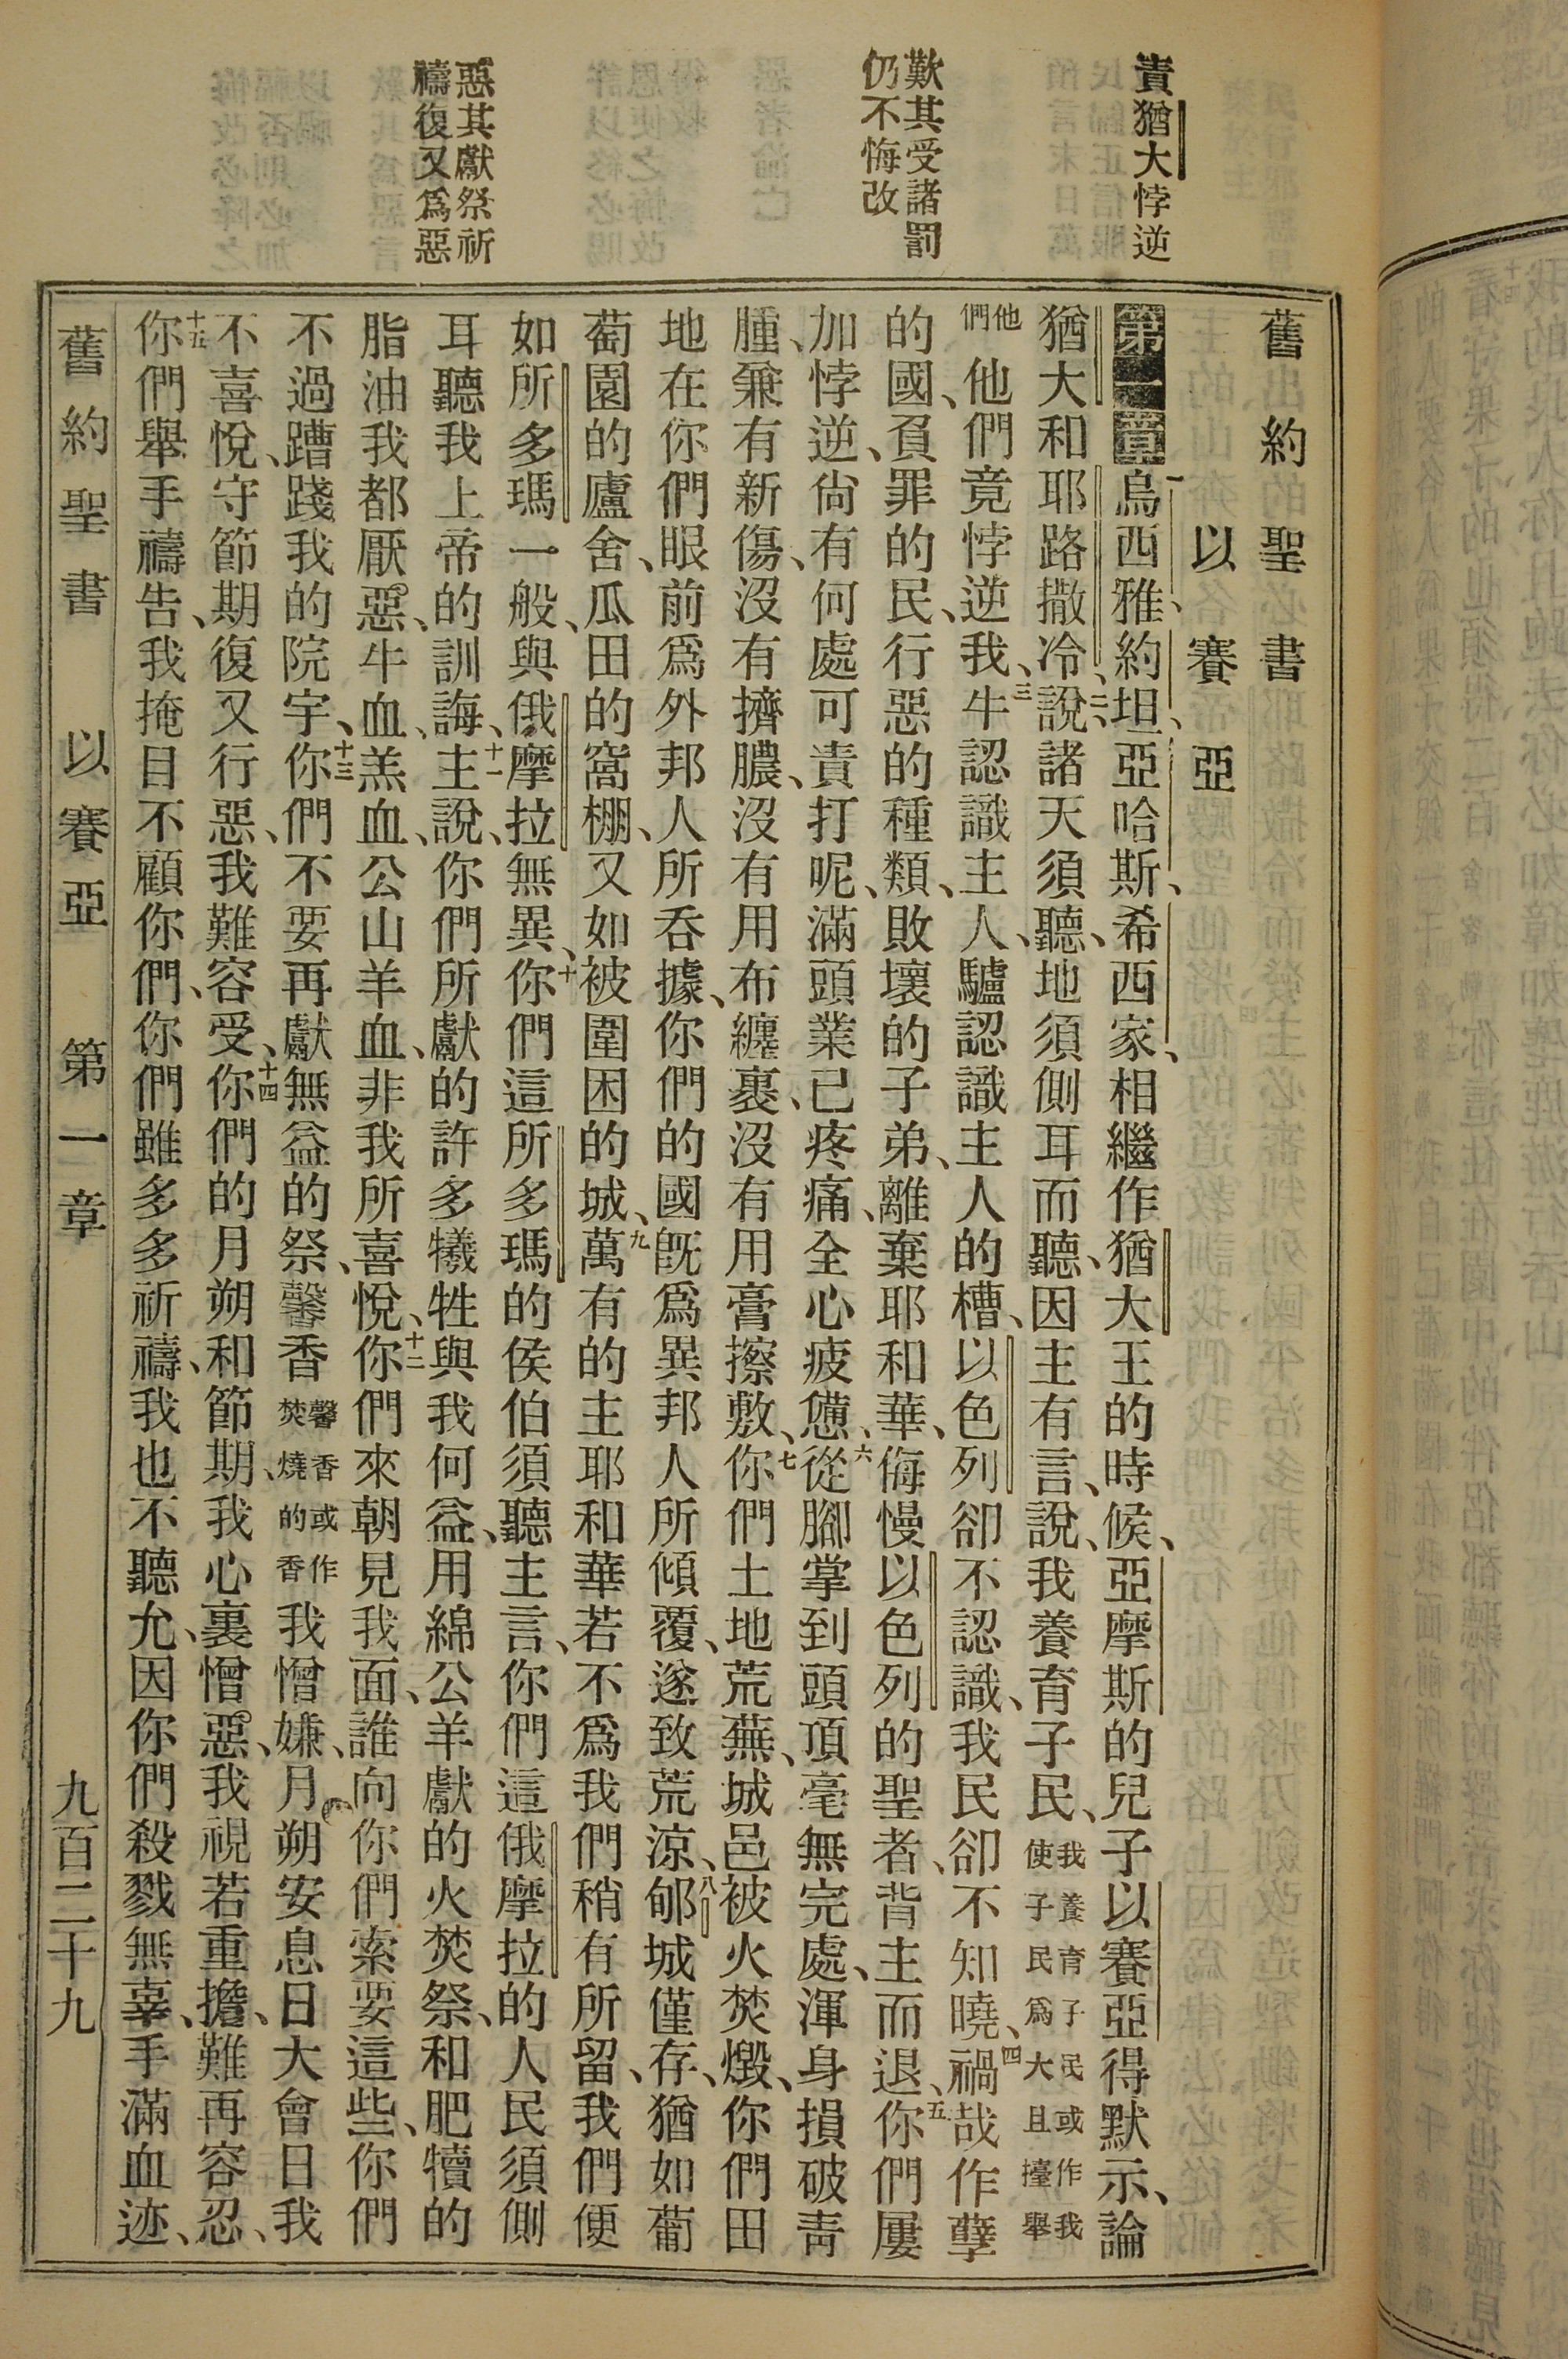 責猶大悖逆
歎其受諸罰
仍不悔改
惡其獻祭祈
禱復又爲惡
舊約聖書
以賽亞
第一章烏西雅、約坦、亞哈斯、希西家、相繼作猶大王的時候、亞摩斯的兒子以賽亞得默示、論
猶大和耶路撒冷、二說、諸天須聽、地須側耳而聽、因主有言、說、我養育子民、我養育子民或作我使子民爲大且擡舉
他們他們竟悖逆我、三牛認識主人、驢認識主人的槽、以色列卻不認識、我民卻不知曉、四禍哉作孽
的國、負罪的民、行惡的種類、敗壞的子弟、離棄耶和華、侮慢以色列的聖者、背主而退、五你們屢
加悖逆、尙有何處可責打呢、滿頭業已疼痛、全心疲憊、六從腳掌到頭頂毫無完處、渾身損破靑
腫、兼有新傷、沒有擠膿、沒有用布纏裹、沒有用膏擦敷、七你們土地荒蕪、城邑被火焚燬、你們田
地在你們眼前爲外邦人所吞據、你們的國旣爲異邦人所傾覆、遂致荒涼、八郇城僅存、猶如葡
萄園的廬舍、瓜田的窩棚、又如被圍困的城、九萬有的主耶和華若不爲我們稍有所留、我們便
如所多瑪一般、與俄摩拉無異、十你們這所多瑪的侯伯須聽主言、你們這俄摩拉的人民須側
耳聽我上帝的訓誨、十一主說、你們所獻的許多犧牲與我何益、用綿公羊獻的火焚祭、和肥犢的
脂油我都厭惡、牛血、羔血、公山羊血、非我所喜悅、十二你們來朝見我面、誰向你們索要這些、你們
不過蹧踐我的院宇、十三你們不要再獻無益的祭、馨香馨香或作焚燒的香我憎嫌、月朔安息日大會日我
不喜悅、守節期、復又行惡、我難容受、十四你們的月朔和節期、我心裏憎惡、我視若重擔、難再容忍、
十五你們舉手禱告、我掩目不顧你們、你們雖多多祈禱、我也不聽允、因你們殺戮無辜、手滿血迹、
舊約聖書 以賽亞 第一章 九百二十九